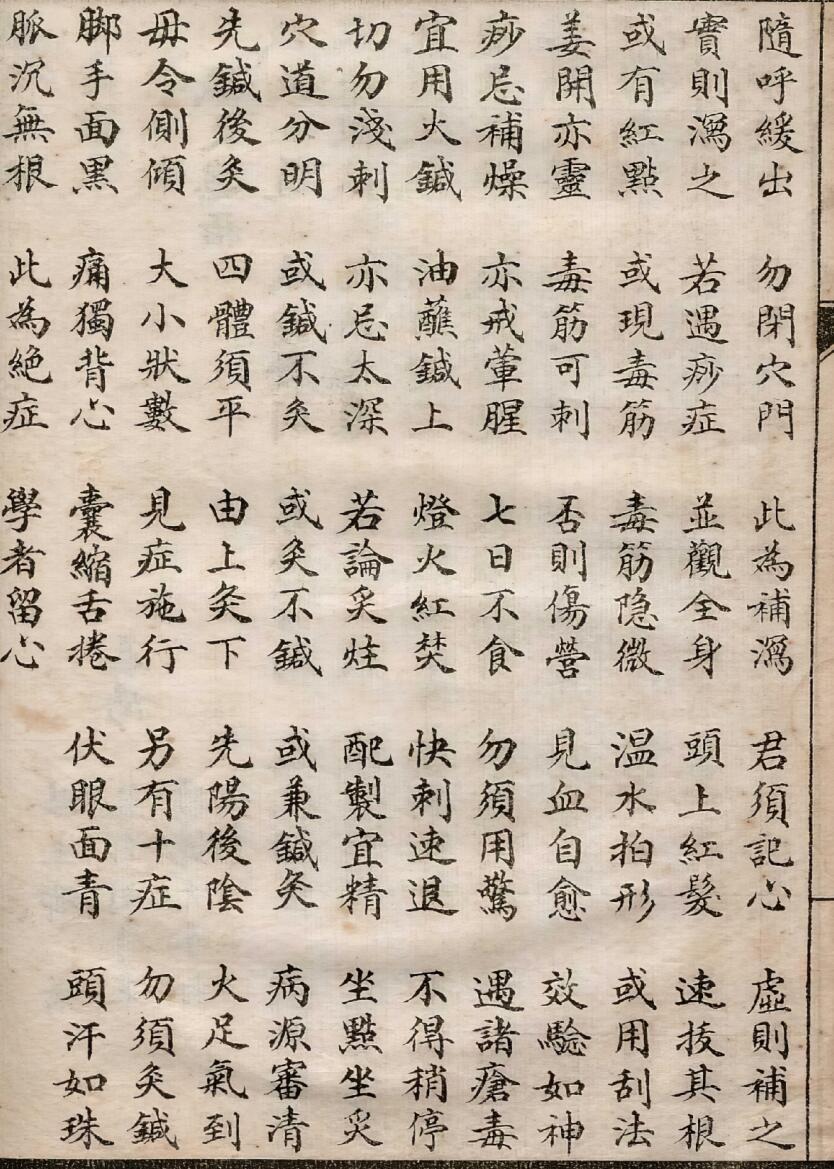 隨呼緩出　勿閉穴門　此為補瀉　君須記心　虛則補之
實則瀉之　若遇痧症　並觀全身　頭上紅髮　速拔其根
或有紅點　或現毒筋　毒筋隐微　温水拍形　或用刮法
姜開亦靈　毒筋可刺　否則傷營　見血自愈　效驗如神
痧忌補燥　亦戒葷腥　七日不食　勿須用驚　遇諸瘡毒
宜用火鍼　油蘸鍼上　燈火紅焚　快刺速退　不得稍停
切勿淺刺　亦忌太深　若論炙炷　配製宜精　坐點坐炙
穴道分明　或鍼不灸　或灸不鍼　或兼鍼灸　病源審清
先鍼後灸　四體須平　由上灸下　先陽後陰　火足氣到
毋令側傾　大小狀數　見症施行　另有十症　勿須灸鍼
脚手面黑　痛獨背心　囊縮舌捲　伏眼面青　頭汗如珠
脈沉無根　此為絕症　學者留心